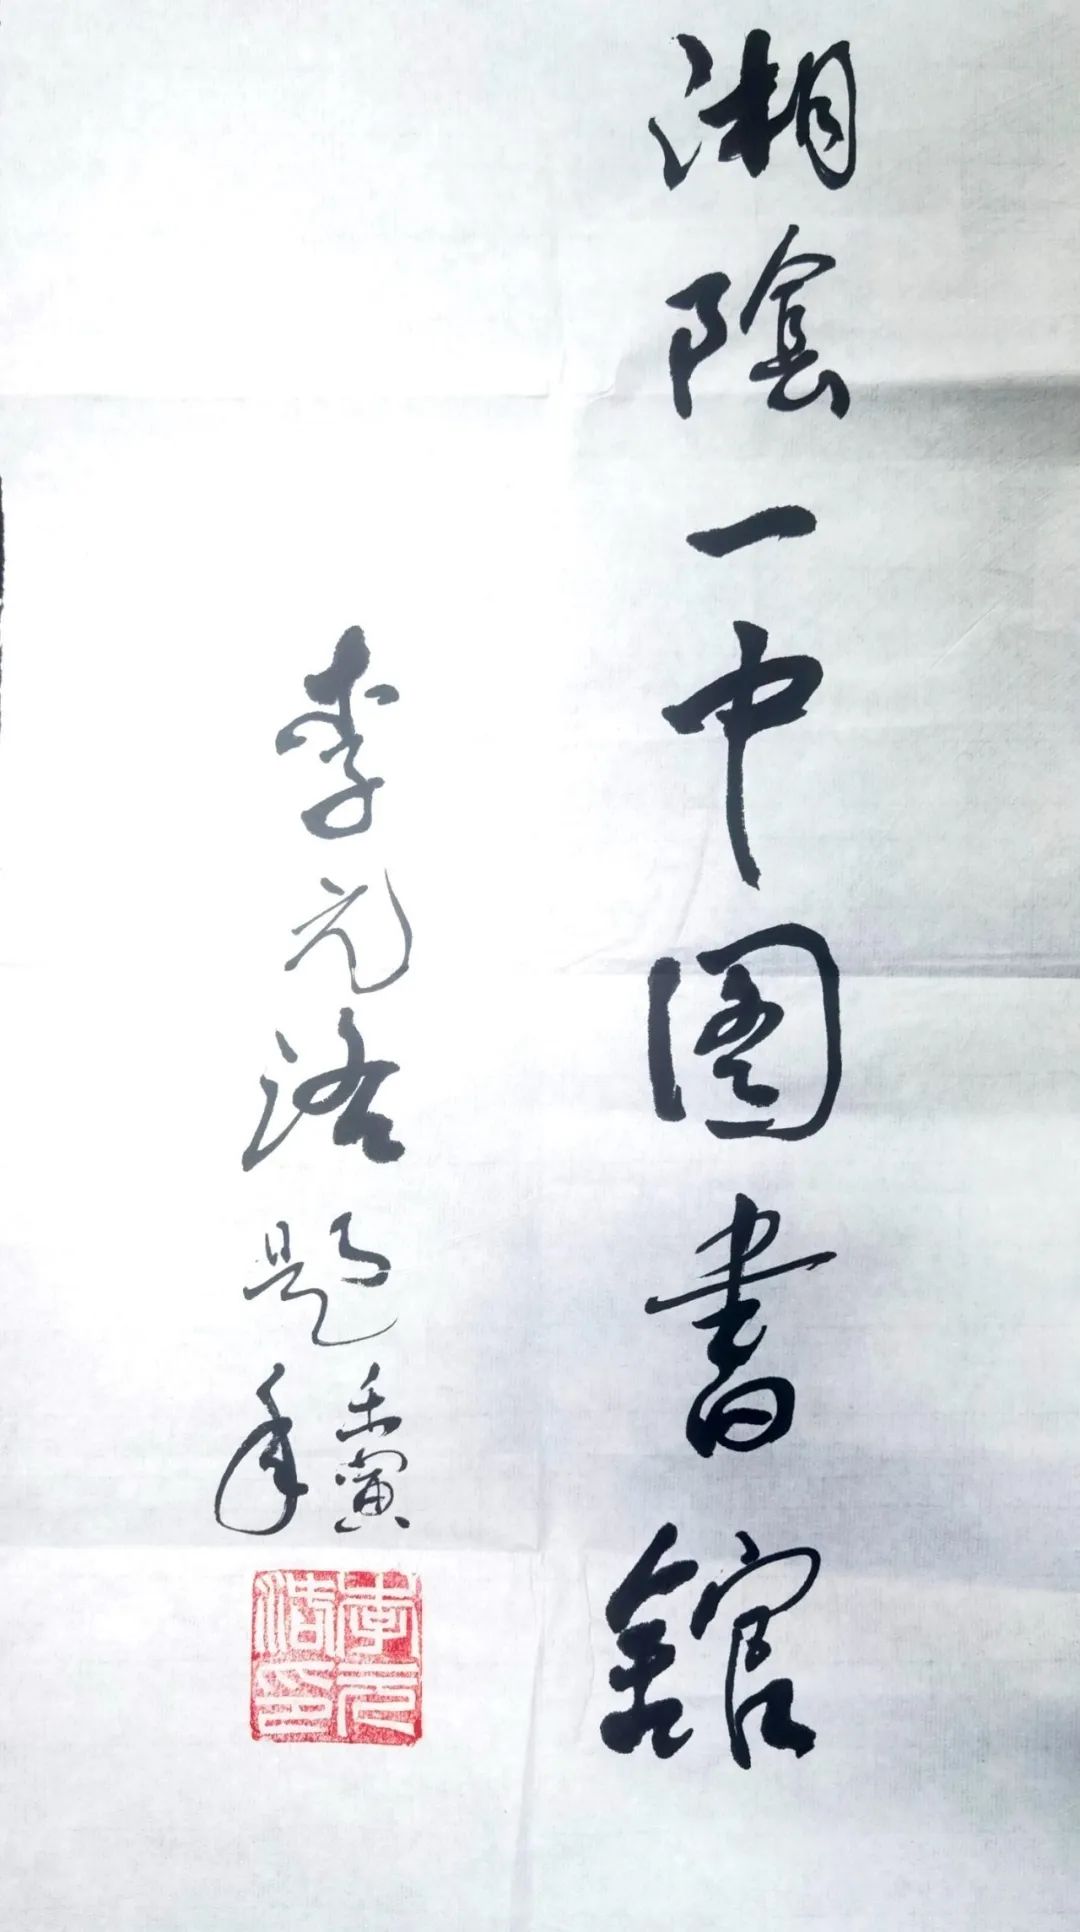 湘陰一中图書館
李元洛题
壬寅
年
李元洛印